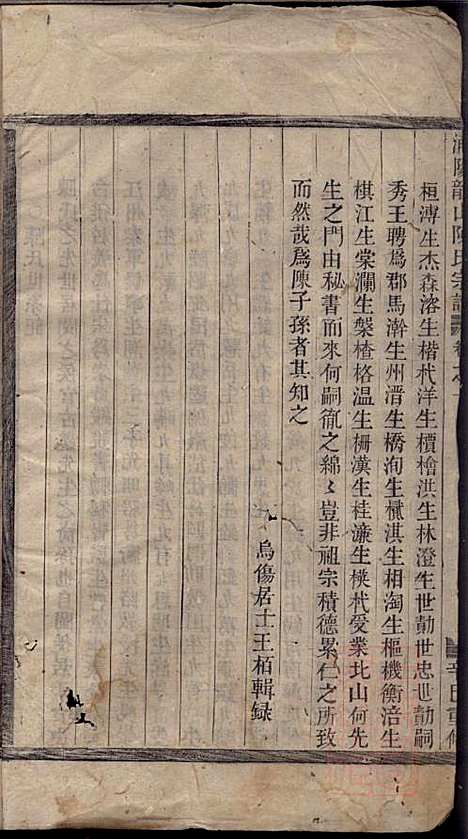 浦陽龍山陳氏宗譜 卷之一 辛巳重修
桓溥生杰森洛生楷杙洋生櫝檜洪生林澄生世勣世忠世勣嗣
秀王聘爲郡馬澣生州溍生橋洵生櫄淇生相淘生樞機衡涪生
棋江生棠瀾生槃楂格温生柵漢生桂濂生楧杙受業北山何先
生之門由秘書而來何嗣𧗠之綿〻豈非祖宗積德累仁之所致
而然哉爲陳子孫者其知之
烏傷居士王栢輯録